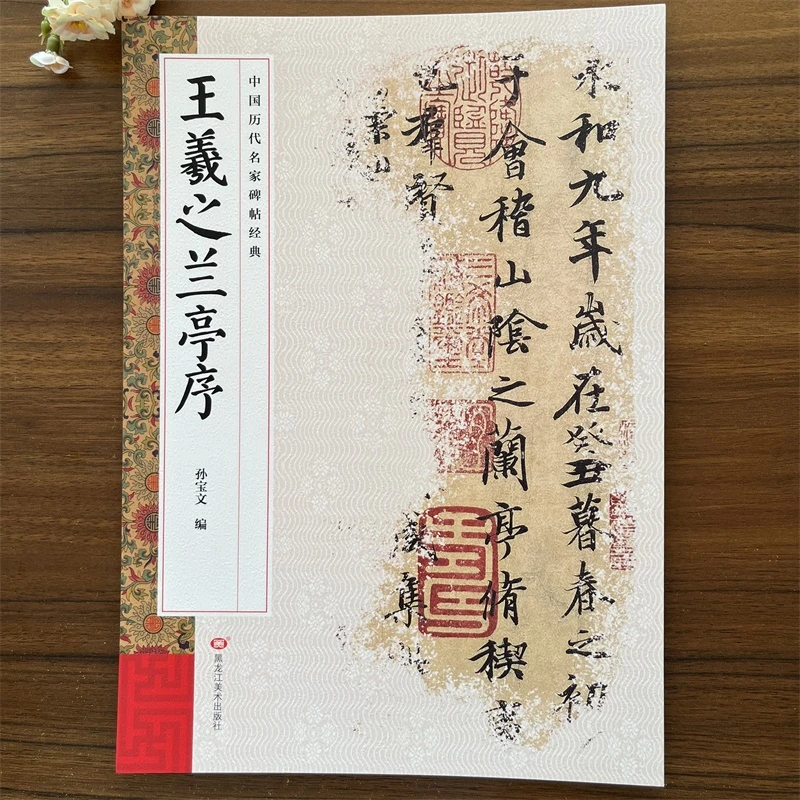 中国历代名家碑帖经典
王羲之兰亭序
孙宝文 编
黑龙江美术出版社
永和九年歲在癸丑暮春之初
于會稽山陰之蘭亭脩稧
羣賢
集